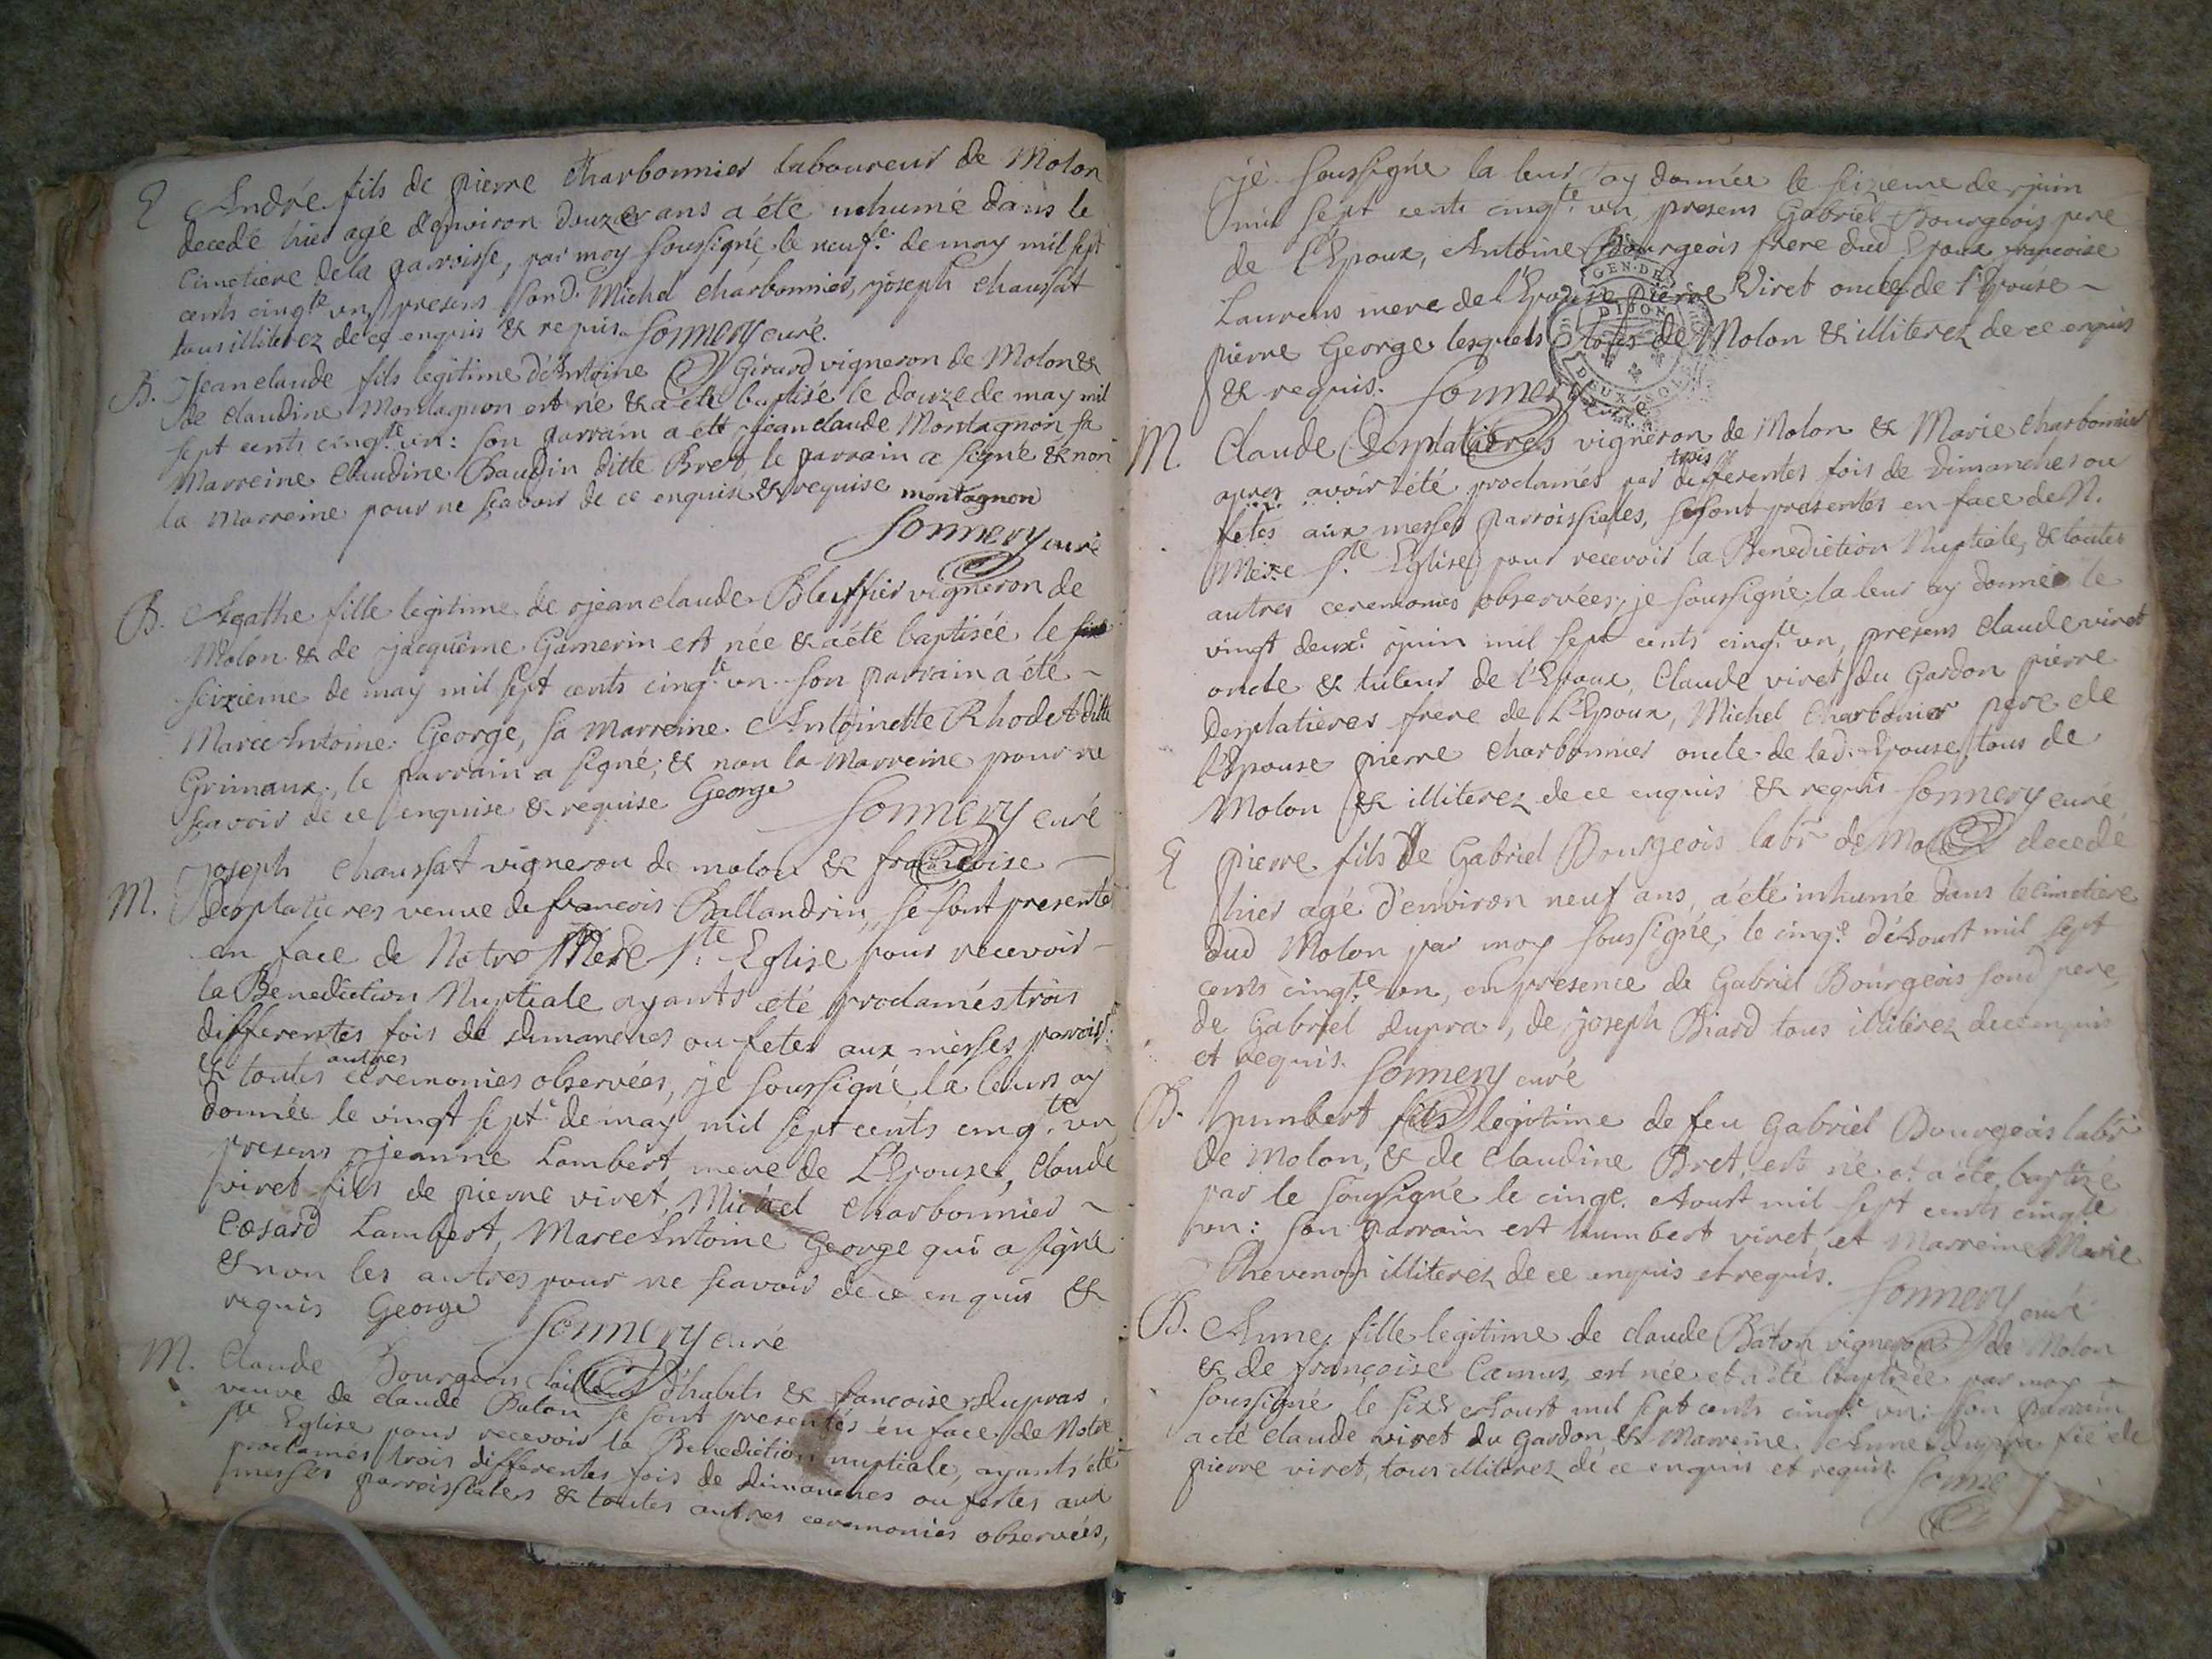 E André fils de pierre Charbonnier laboureur de Molon
decedé hier agé d'environ douze ans a été inhumé dans le
Cimetiere dela parroisse, par moy soussigné le neufe. de may mil sept
cents cinqte un, presens sond. Michel Charbonnier, joseph Chaussat
tous illiterez de ce enquis & requis. Sonnery curé.
B. Jeanclaude fils legitime d'Antoine Girard vigneron de Molon &
de claudine Montagnon est né & a été baptisé le douze de may mil
sept cents cinqte un: son parrain a été jeanclaude Montagnon sa
Marreine Claudine Baudin ditte Bret, le parrain a signé & non
la Marreine pour ne scavoir de ce enquise & requise montagnon
Sonnery curé
B. Agathe fille legitime de jeanclaude Bleffier vigneron de
Molon & de jacqueme Garnerin est née & a été baptisée le
seizieme de may mil sept cents cinqte un son parrain a été ~
MarcAntoine George, sa Marreine Antoinette Rhodet ditte
Grimaux, le parrain a signé, & non la Marreine pour ne
scavoir de ce enquise & requise George
Sonnery curé
M. Joseph Chaussat vigneron de molon & francoise
desplatieres veuve de francois Ballandrin, se sont presentés
en face de Notre Mere Ste Eglise pour recevoir
la Benediction Nuptiale ayants été proclamés trois
differentes fois de dimanches ou fetes aux messes parroiss.
& toutes autres ceremonies observées, je soussigné la leurs ay
donnée le vingt septe de may mil sept cents cinqte un
presens jeanne Lambert mere de L'Epouse, Claude
viret fils de pierre viret, Michel Charbonnier ~
Cæsard Lambert, MarcAntoine George qui a signé
& non les autres pour ne scavoir de ce enquis &
requis George Sonnery curé
M. Claude Bourgeois tailleur d'habits & francoise dupras
veuve de claude Baton se sont presentés en face de Notre
Ste Eglise pour recevoir la Benediction nuptiale, ayants été
proclamés trois differentes fois de dimanches ou festes aux
messes parroissiales & toutes autres ceremonies observées,
je soussigné la leur ay donnée le seizieme de juin
mil sept cents cinqte. un, presens Gabriel Bourgeois pere
de L'Epoux, Antoine Bourgeois frere dud. Epoux francoise
Laurens mere de l'Epouse pierre Viret oncle de l'Epouse ~
pierre George lesquels tous de Molon & illiterez de ce enquis
& requis. Sonnery curé
GEN. DE
DIJON
DEUX SOLS
M. Claude Desplatieres vigneron de Molon & Marie Charbonnier
apres avoir été proclamés par trois differentes fois de Dimanches ou
fetes aux messes parroissiales, se sont presentés en face de N.
Mere Ste Eglise pour recevoir la Benediction Nuptiale, & toutes
autres ceremonies observées, je soussigné la leur ay donnée le
vingt deuxe. juin mil sept cents cinqte un, presens Claude viret
oncle & tuteur de l'Epoux, Claude viret du Gardon pierre
Desplatieres frere de L'Epoux, Michel Charbonier pere de
l'Epouse pierre Charbonnier oncle de lad. Epouse, tous de
Molon & illiterez de ce enquis & requis Sonnery curé
E pierre fils de Gabriel Bourgeois labr de Molon decedé
hier agé d'environ neuf ans, a été inhumé dans le cimetiere
dud Molon par moy soussigné, le cinqe. d'Aoust mil sept
cents cinqte un, en presence de Gabriel Bourgeois sond pere
de Gabriel dupra, de joseph Biard tous illiterez de ce enquis
et requis. Sonnery curé
B. humbert fils legitime de feu Gabriel Bourgeois labr
de Molon, & de Claudine Bret, est né et a été baptizé
par le soussigné le cinqe. Aoust mil sept cents cinqte
un: son parrain est humbert viret, et Marreine Marie
Thevenon illiterez de ce enquis et requis.
Sonnery curé
B. Anne fille legitime de claude Baton vigneron de Molon
& de françoise Camus, est née et a été baptisée par moy
soussigné le sixe Aoust mil sept cents cinqte un: son parrain
a été claude viret du Gardon & Marreine Anne dupra fe de
pierre viret, tous illiterez de ce enquis et requis. Sonnery